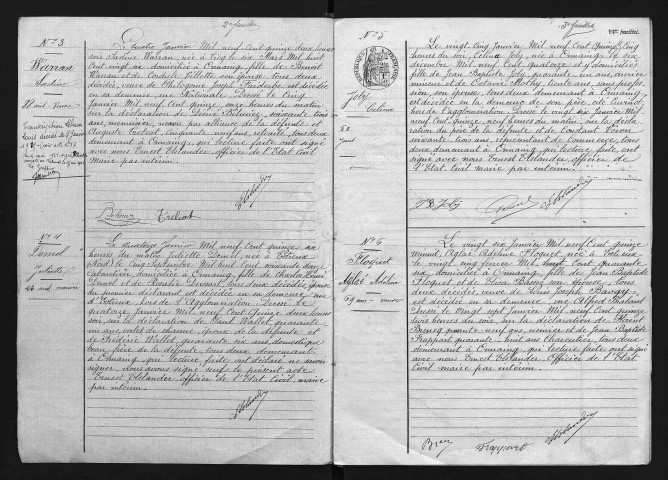 2e feuillet
No 3
Warran
Justine
Le Quatre Janvier Mil neuf Cent quinze deux heures
soir, Justine Warran, née à Vicq le six Mars Mil huit
Cent vingt sept domiciliée à Onnaing, fille de Benoit
Warran et de Cordule Villette son épouse, tous deux
décédés, veuve de Philogone Joseph Faideherbe est décédée
en sa demeure, rue Nationale. Dressé le Cinq
Janvier Mil neuf Cent quinze, onze heures du matin
sur la déclaration de Denis Behune, soixante trois
ans, menuisier, neveu par alliance de la défunte et
Auguste Trelcat, Cinquante neuf ans, retraité, tous deux
demeurant à Onnaing, qui lecture faite ont signé
avec nous Ernest Elslander officier de l'Etat Civil
Maire par intérim.
Elslander
Behune
Trelcat
No 4
Juliette
44 ans
Le quatorze Janvier Mil neuf Cent quinze six
heures du matin Juliette née à Estreux
Nord le Cinq Septembre Mil huit Cent soixante dix
Cabaretière, domiciliée à Onnaing, fille de Charles Louis
et de Rosalie Dumont tous deux décédés, épouse
du premier déclarant est décédée en sa demeure, rue
d'Estreux hors de l'Agglomération. Dressé le
quatorze Janvier Mil neuf Cent Quinze deux heures
soir, sur la déclaration de Paul Wallet quarante
un ans, valet de charrue, époux de la défunte et
de Frédéric Wallet, quarante six ans, domestique
beau frère de la défunte, tous deux demeurant
à Onnaing, qui lecture faite ont déclaré ne savoir
signer, nous avons signé seul le présent acte
Ernest Elslander Officier de l'Etat Civil, maire
par intérim.
Elslander
3e feuillet
No 5
Joly
Celina
Le vingt Cinq Janvier Mil neuf Cent Quinze, Cinq
heures du soir, Celina Joly, née à Onnaing le dix
décembre Mil neuf Cent quatorze et y domiciliée,
fille de Jean Baptiste Joly, quarante un ans, ouvrier
mineur et de Octavie Molly, trente ans, sans profes-
sion, son épouse, tous deux demeurant à Onnaing,
est décédée en la demeure de son père, cité Cuvinot
hors de l'agglomération. Dressé le vingt six Janvier
Mil neuf Cent Quinze, neuf heures du matin, sur la décla-
ration du père de la défunte et de Constant
soixante trois ans, représentant de Commerce, tous
deux demeurant à Onnaing, qui lecture faite ont
signé avec nous Ernest Elslander, officier de
l'Etat Civil, maire par intérim.
JB Joly
Elslander
No 6
Floquet
Aglaé Adeline
69 ans
Le vingt six Janvier Mil neuf Cent quinze
minuit, Aglaé Adeline Floquet, née à Estreux
le vingt cinq février Mil huit Cent quarante
six, domiciliée à Onnaing, fille de Jean Baptiste
Floquet et de Elisa Bresou son épouse, tous
deux décédés, veuve de Louis Joseph
est décédée en sa demeure, rue Alfred
Dressé le Vingt sept Janvier Mil neuf Cent Quinze
trois heures du soir, sur la déclaration de Florent
Breucq quarante neuf ans, usinier et de Jean Baptiste
Frappart quarante huit ans Charcutier, tous deux
demeurant à Onnaing, qui lecture faite ont signé
avec nous Ernest Elslander Officier de l'Etat
Civil maire par intérim.
Elslander
Breucq
Frappart